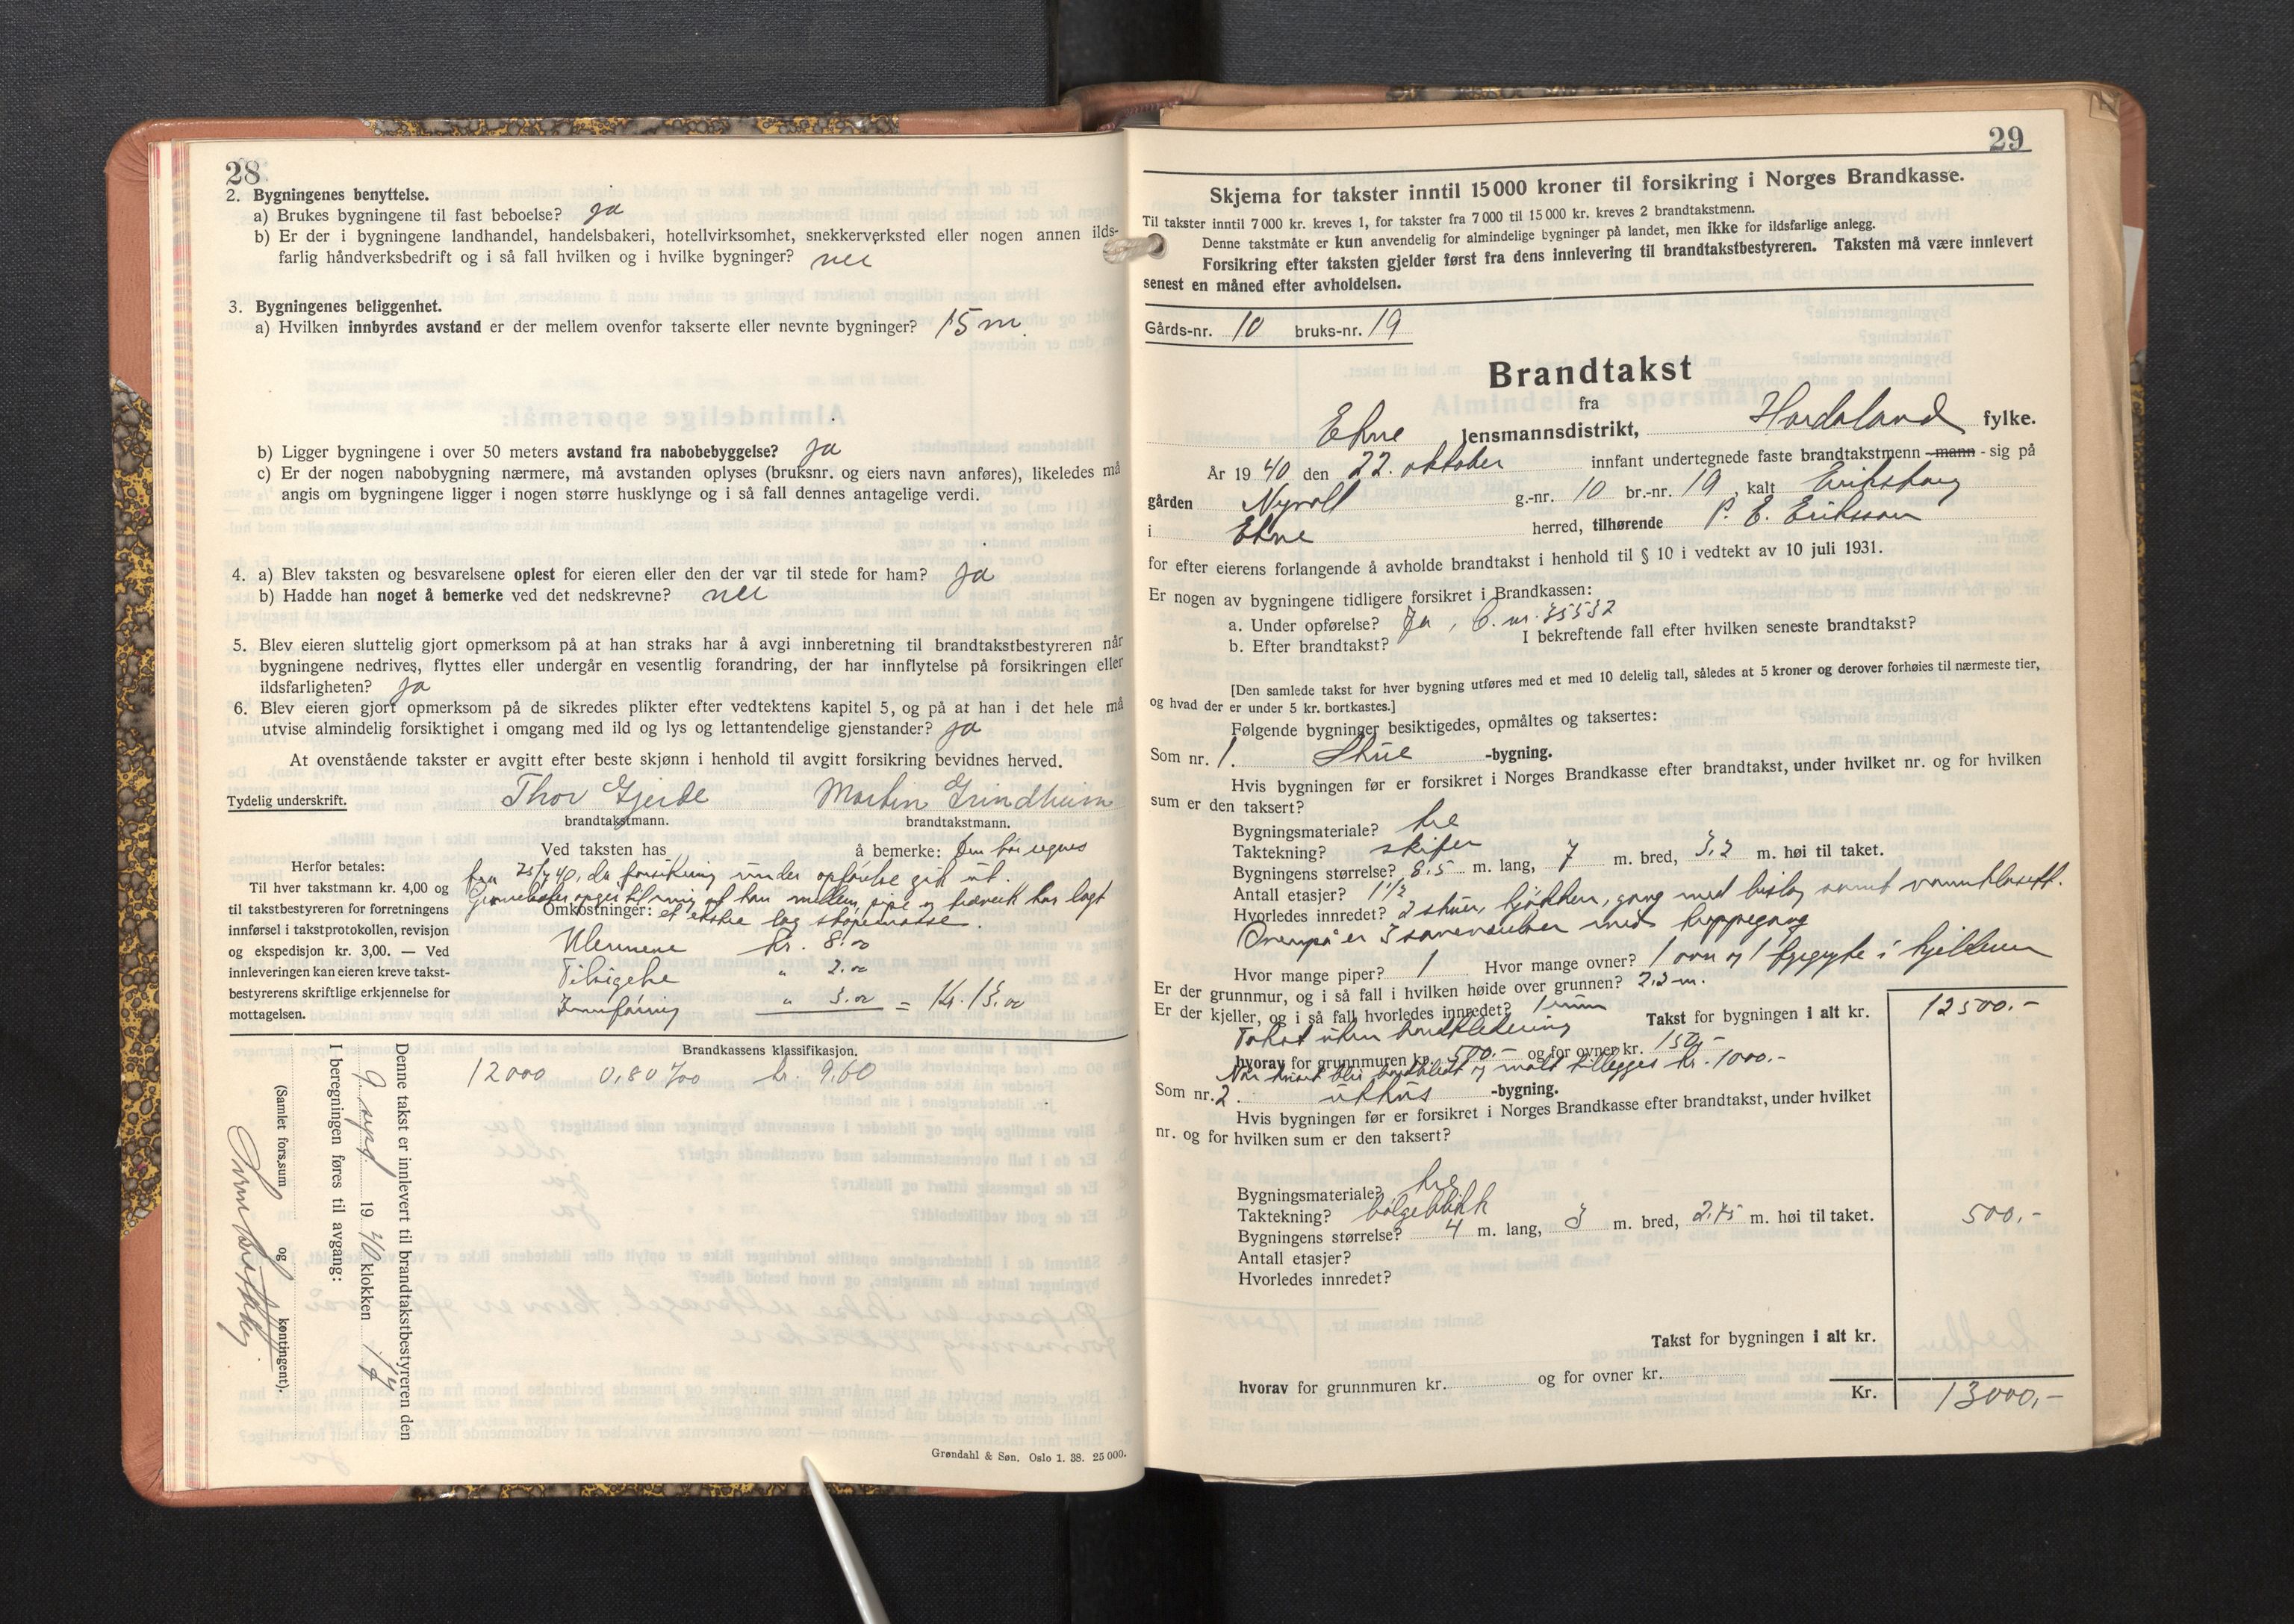 28
2. Bygningenes benyttelse.
a) Brukes bygningene til fast beboelse? ja
b) Er der i bygningene landhandel, handelsbakeri, hotellvirksomhet, snekkerverksted eller nogen annen ilds-
farlig håndverksbedrift og i så fall hvilken og i hvilke bygninger? nei
3. Bygningenes beliggenhet.
a) Hvilken innbyrdes avstand er der mellem ovenfor takserte eller nevnte bygninger? 15 m.
b) Ligger bygningene i over 50 meters avstand fra nabobebyggelse? ja
c) Er der nogen nabobygning nærmere, må avstanden oplyses (bruksnr. og eiers navn anføres), likeledes må
angis om bygningene ligger i nogen større husklynge og i så fall dennes antagelige verdi.
4. a) Blev taksten og besvarelsene oplest for eieren eller den der var til stede for ham? ja
b) Hadde han noget å bemerke ved det nedskrevne? nei
5. Blev eieren sluttelig gjort opmerksom på at han straks har å avgi innberetning til brandtakstbestyreren når
bygningene nedrives, flyttes eller undergår en vesentlig forandring, der har innflytelse på forsikringen eller
ildsfarligheten? ja
6. Blev eieren gjort opmerksom på de sikredes plikter efter vedtektens kapitel 5, og på at han i det hele må
utvise almindelig forsiktighet i omgang med ild og lys og lettantendelige gjenstander? ja
At ovenstående takster er avgitt efter beste skjønn i henhold til avgitt forsikring bevidnes herved.
Tydelig underskrift. Thor Gjerde Martin Grindheim
brandtakstmann. brandtakstmann.
Herfor betales:
Til hver takstmann kr. 4,00 og
til takstbestyreren for forretningens
innførsel i takstprotokollen, revisjon
og ekspedisjon kr. 3,00. — Ved
innleveringen kan eieren kreve takst-
bestyrerens skriftlige erkjennelse for
mottagelsen.
Ved taksten has å bemerke: Den bør regnes
fra 25/7 40, da forsikring under opførelse gik ut.
at han mellem pipe og har lagt
Omkostninger: et ekstra lag
kr. 8.00
Tilsigelse " 2.00
Innføring " 3.00 = Kr. 13.00
Brandkassens klassifikasjon.
12000 0,80 ‰ kr. 9,60
Denne takst er innlevert til brandtakstbestyreren den
9. 1940 klokken
I beregningen føres til avgang:
(Samlet fors.sum og kontingent).
Grøndahl & Søn. Oslo 1. 38. 25 000.
29
Skjema for takster inntil 15000 kroner til forsikring i Norges Brandkasse.
Til takster inntil 7 000 kr. kreves 1, for takster fra 7 000 til 15 000 kr. kreves 2 brandtakstmenn.
Denne takstmåte er kun anvendelig for almindelige bygninger på landet, men ikke for ildsfarlige anlegg.
Forsikring efter taksten gjelder først fra dens innlevering til brandtakstbestyreren. Taksten må være innlevert
senest en måned efter avholdelsen.
Gårds-nr. 10 bruks-nr. 19
Brandtakst
fra
Etne lensmannsdistrikt, Hordaland fylke.
År 1940 den 22. oktober innfant undertegnede faste brandtakstmenn -mann- sig på
gården g.-nr. 10 br.-nr. 19, kalt Eriksborg
i Etne herred, tilhørende P. E. Eriksson
for efter eierens forlangende å avholde brandtakst i henhold til § 10 i vedtekt av 10 juli 1931.
Er nogen av bygningene tidligere forsikret i Brandkassen:
a. Under opførelse? Ja, B. nr. 35532
b. Efter brandtakst? I bekreftende fall efter hvilken seneste brandtakst?
[Den samlede takst for hver bygning utføres med et med 10 delelig tall, således at 5 kroner og derover forhøies til nærmeste tier,
og hvad der er under 5 kr. bortkastes.]
Følgende bygninger besiktigedes, opmåltes og taksertes:
Som nr. 1. Stue -bygning.
Hvis bygningen før er forsikret i Norges Brandkasse efter brandtakst, under hvilket nr. og for hvilken
sum er den taksert?
Bygningsmateriale? tre
Taktekning? skifer
Bygningens størrelse? 8,5 m. lang, 7 m. bred, 3.2 m. høi til taket.
Antall etasjer? 1 1/2
Hvorledes innredet? 2 stuer, kjøkken, gang med bislag samt vannklosett.
Ovenpå er 3 soveværelser med trappegang
Hvor mange piper? 1 Hvor mange ovner? 1 ovn og 1 i kjelderen
Er der grunnmur, og i så fall i hvilken høide over grunnen? 2,2 m.
Er der kjeller, og i så fall hvorledes innredet? 1 rum
Takst uten bordkledning Takst for bygningen i alt kr. 12500.-
hvorav for grunnmuren kr. 500.- og for ovner kr. 150,-
Når huset blir bordkledt og malt tillegges kr. 1000.-
Som nr. 2. uthus -bygning.
Hvis bygningen før er forsikret i Norges Brandkasse efter brandtakst, under hvilket
nr. og for hvilken sum er den taksert?
Bygningsmateriale? tre
Taktekning? bølgeblikk
Bygningens størrelse? 4 m. lang, 3 m. bred, 2.75 m. høi til taket. 500.-
Antall etasjer?
Hvorledes innredet?
Takst for bygningen i alt kr.
hvorav for grunnmuren kr. og for ovner kr.
Kr. 13000,-